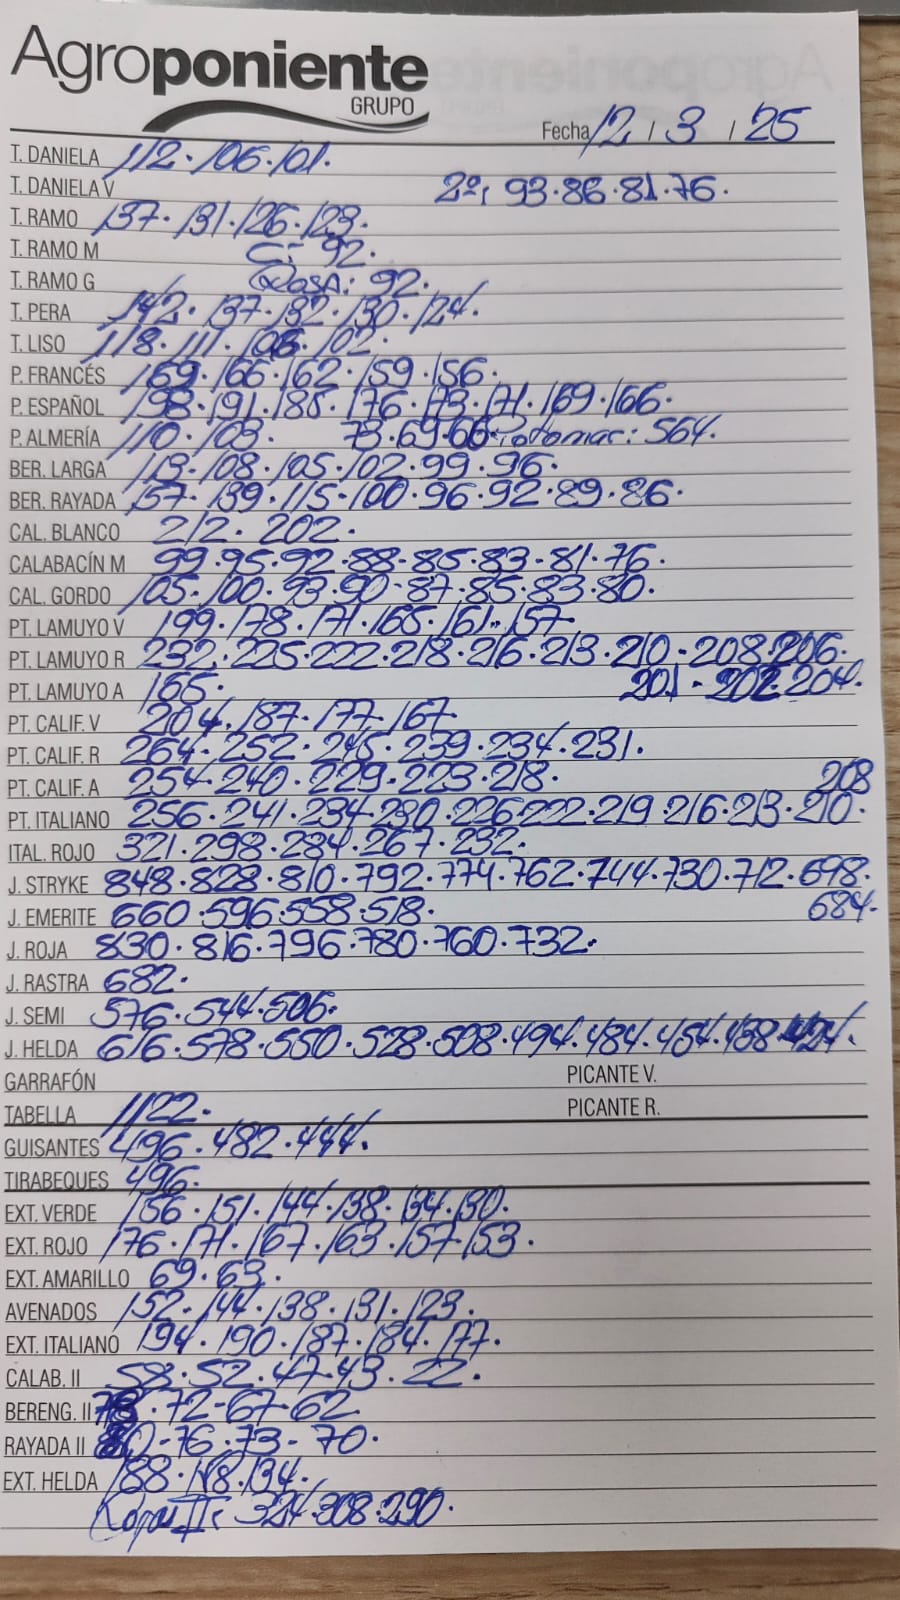 Agroponiente
GRUPO
Fecha 12 / 3 / 25
T. DANIELA 112 · 106 · 101 ·
T. DANELA V 2º: 93 · 86 · 81 · 76 ·
T. RAMO 137 · 131 · 126 · 123 ·
T. RAMO M C: 92 ·
T. RAMO G ROSA: 92 ·
T. PERA 142 · 137 · 132 · 130 · 124 ·
T. LISO 118 · 111 · 106 · 102 ·
P. FRANCÉS 169 · 166 · 162 · 159 · 156 ·
P. ESPAÑOL 198 · 191 · 185 · 176 · 173 · 171 · 169 · 166 ·
P. ALMERÍA 110 · 103 · 73 · 69 · 66 · : 564 ·
BER. LARGA 113 · 108 · 105 · 102 · 99 · 96 ·
BER. RAYADA 157 · 139 · 115 · 100 · 96 · 92 · 89 · 86 ·
CAL. BLANCO 212 · 202 ·
CALABACÍN M 99 · 95 · 92 · 88 · 85 · 83 · 81 · 76 ·
CAL. GORDO 105 · 100 · 93 · 90 · 87 · 85 · 83 · 80 ·
PT. LAMUYO V 199 · 178 · 171 · 165 · 161 · 157
PT. LAMUYO R 232 · 225 · 222 · 218 · 216 · 213 · 210 · 208 · 206 ·
PT. LAMUYO A 165 · 201 · 202 · 204 ·
PT. CALIF. V 204 · 187 · 177 · 167
PT. CALIF. R 264 · 252 · 245 · 239 · 234 · 231 ·
PT. CALIF. A 254 · 240 · 229 · 223 · 218 · 208
PT. ITALIANO 256 · 241 · 234 · 230 · 226 · 222 · 219 · 216 · 213 · 210 ·
ITAL. ROJO 321 · 298 · 284 · 267 · 232 ·
J. STRYKE 848 · 828 · 810 · 792 · 774 · 762 · 744 · 730 · 712 · 698 ·
J. EMERITE 660 · 596 · 558 · 518 · 684 ·
J. ROJA 830 · 816 · 796 · 780 · 760 · 732 ·
J. RASTRA 682 ·
J. SEMI 576 · 544 · 506 ·
J. HELDA 616 · 578 · 550 · 528 · 508 · 494 · 484 · 454 · 438 · 424 ·
GARRAFÓN PICANTE V.
TABELLA 1122 · PICANTE R.
GUISANTES 496 · 482 · 444 ·
TIRABEQUES 496 ·
EXT. VERDE 156 · 151 · 144 · 138 · 134 · 130 ·
EXT. ROJO 176 · 171 · 167 · 163 · 157 · 153 ·
EXT. AMARILLO 69 · 63 ·
AVENADOS 152 · 144 · 138 · 131 · 123 ·
EXT. ITALIANO 194 · 190 · 187 · 184 · 177 ·
CALAB. II 58 · 52 · 47 · 43 · 22 ·
BERENG. II 78 · 72 - 67 - 62
RAYADA II 80 - 76 · 73 - 70 ·
EXT. HELDA 188 · 148 · 134 ·
II: 324 · 308 · 290 ·